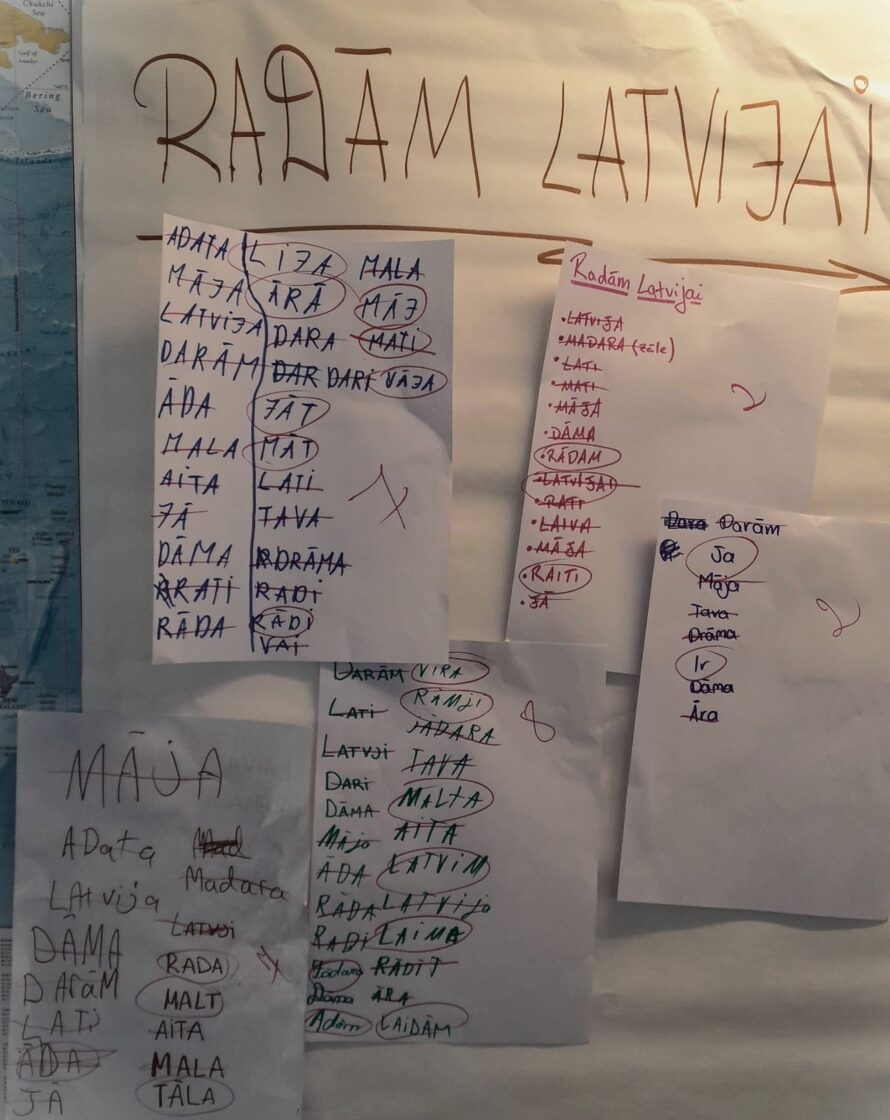 Chukchi
Sea
Gulf of
Anadyr
Bering
Sea
RADĀM LATVIJAi
ADATA LIJA MALA
MĀJA ĀRĀ MĀJ
LATVIJA DARA MATI
DARĀM DAR DARi VĀJA
ĀDA JĀT
MALA MĀT
AITA LATI
JĀ TAVA
DĀMA DRĀMA
RATI RADI
RĀDA RĀDI
VAI
Radām Latvijai
• LATVIJA
• MADARA (zāle)
• LATI
• MATI
• MĀJA
• DĀMA
• RĀDAM
• LATVIJAI
• RATI
• LAIVA
• MĀJA
• RAITI
• JĀ
2
Dara Darām
Ja
Māja
Tava
Drāma
Ir
Dāma
Āra
2
DARĀM VIRA
LATI RĀMJI
JĀDARA
LATVJI TAVA
DARI MALTA
DĀMA AITA
MĀJO LATVIM
ĀDA LATVIJO
RĀDA LAIMA
RADI RĀDĪT
Dāma ĀRA
Adām LAIDĀM
8
MĀJA
AData Mad
LAtvija Madara
DĀMA LATVJI
DArāM RADA
LATi MALT
ĀDA AITA
JĀ MALA
TĀLA